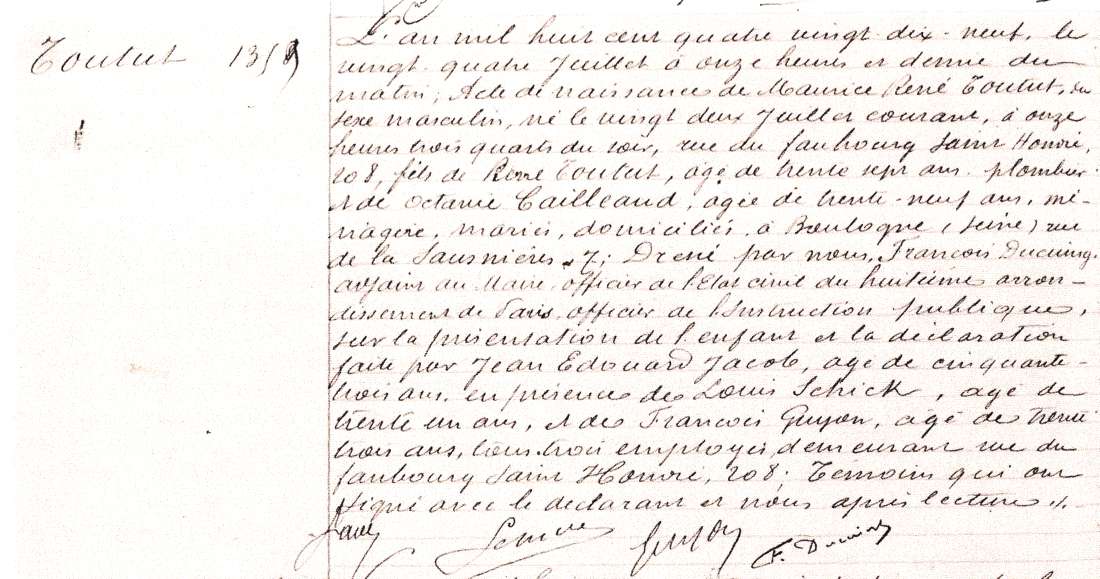 Toutut 1359
L'an mil huit cent quatre vingt dix-neuf, le
vingt quatre Juillet à onze heures et demie du
matin; Acte de naissance de Maurice René Toutut, du
sexe masculin, né le vingt deux Juillet courant, à onze
heures trois quarts du soir, rue du faubourg Saint Honoré,
208, fils de René Toutut, âgé de trente sept ans, plombier
et de Octavie Cailleaud, agée de trente-neuf ans, mé-
nagère, mariés, domiciliés à Boulogne (Seine) rue
de la Saussières, 7; Dressé par nous, François Ducuing,
adjoint au Maire, officier de l'Etat civil du huitième arron-
dissement de Paris, officier de l'Instruction publique,
sur la présentation de l'enfant et la déclaration
faite par Jean Edouard Jacob, agé de cinquante-
trois ans, en présence de Louis Schick, agé de
trente un ans, et de François Guyon, agé de trente
trois ans, tous trois employés, demeurant rue du
faubourg Saint Honoré, 208; Témoins qui ont
signé avec le déclarant et nous après lecture ./.
F. Ducuing